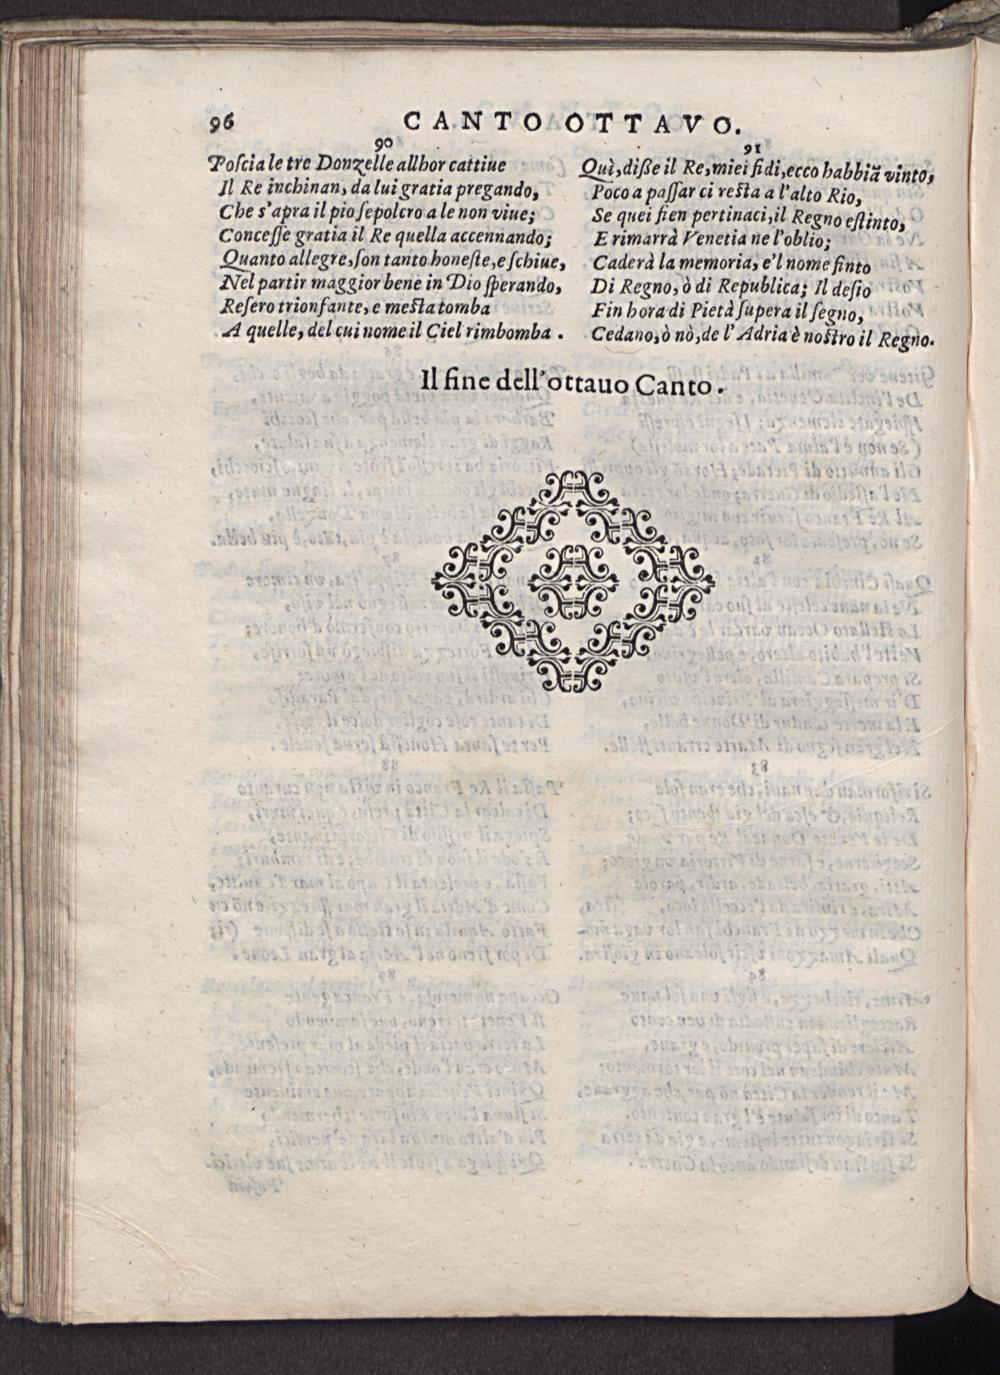 96
CANTO OTTAVO.
90
Poſcia le tre Donzelle allhor cattiue
Il Re inchinan, da lui gratia pregando,
Che s'apra il pio ſepolcro a le non viue;
Conceſſe gratia il Re quella accennando;
Quanto allegre, ſon tanto honeſte, e ſchiue,
Nel partir maggior bene in Dio ſperando,
Reſero trionfante, e meſta tomba
A quelle, del cui nome il Ciel rimbomba.
91
Quì, diſse il Re, miei fidi, ecco habbiā vinto,
Poco a paſſar ci reſta a l'alto Rio,
Se quei fien pertinaci, il Regno eſtinto,
E rimarrà Venetia ne l'oblio;
Caderà la memoria, e'l nome finto
Di Regno, ò di Republica; Il deſio
Fin hora di Pietà ſupera il ſegno,
Cedano, ò nò, de l'Adria è noſtro il Regno.
Il fine dell'ottauo Canto.